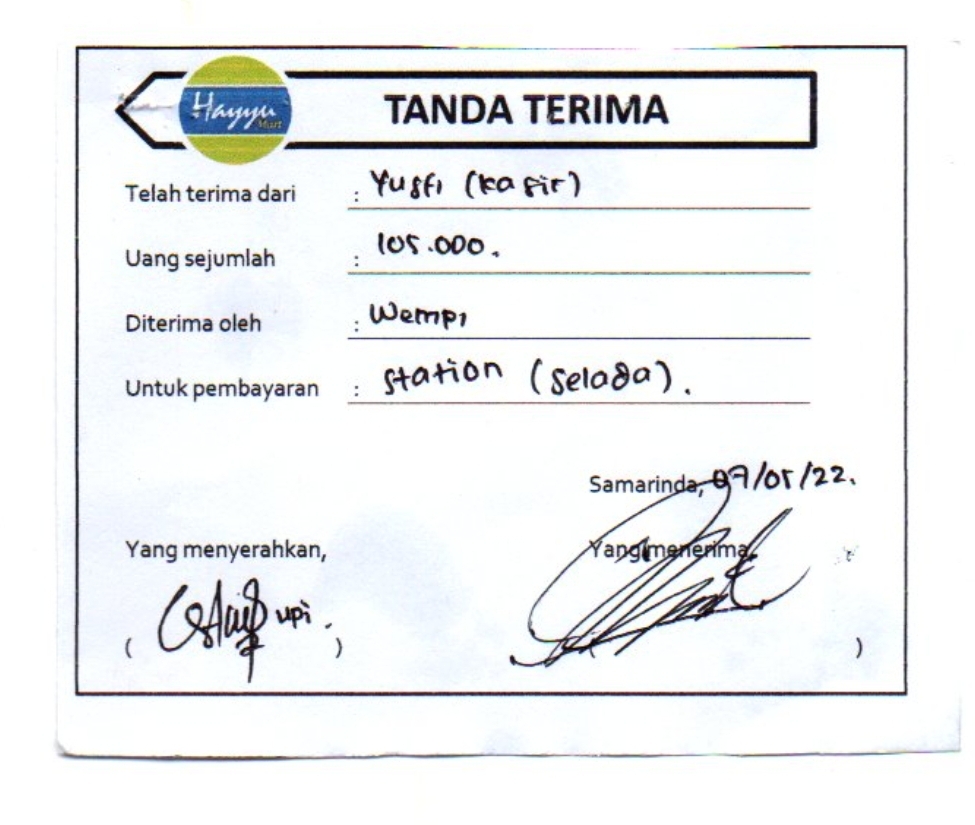 Hayyu
Mart
TANDA TERIMA
Telah terima dari : Yusfi (kasir)
Uang sejumlah : 105.000.
Diterima oleh : Wempi
Untuk pembayaran : station (selada).
Samarinda, 07/05/22.
Yang menyerahkan, Yang menerima,
upi.
( ) ( )